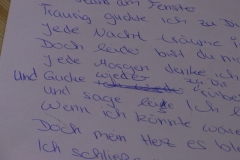 am Fenste
Traurig gucke ich zu Di
Jede Nacht träume i
Doch leider bist du ni
Jede Morgen denke ich
und Gucke wieder zu
und sage leise Ich l
Wenn ich könnte wäre
Doch mein Herz es
Ich schließe